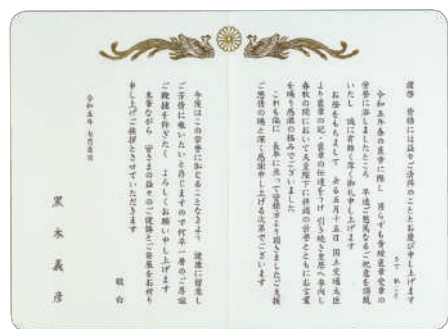 謹啓 皆様には益々ご清祥のこととお慶び申し上げます
さて 私こと
令和五年春の叙章に際し 図らずも黄綬褒章受章の
栄誉に浴しましたところ 早速ご懇篤なるご祝意を頂戴
いたし 誠に有難く厚く御礼申し上げます
お陰をもちまして 去る五月十五日 国土交通大臣
より褒章の記・褒章の伝達をうけ 引き続き皇居へ参内し
春秋の間において天皇陛下に拝謁の栄誉とともにお言葉
を賜り感激の極みでございました
これも偏に 長年に亘って皆様方より賜りましたご支援
ご懇情の賜と深く感謝申し上げる次第でございます
今後はこの栄誉に恥じることなきよう 健康に留意し
ご芳情に報いたいと存じますので何卒一層のご厚誼
ご鞭撻を仰ぎたく よろしくお願い申し上げます
末筆ながら 皆さまの益々のご健勝とご発展をお祈り
申し上げご挨拶とさせていただきます
敬白
令和五年 七月吉日
黒木義彦